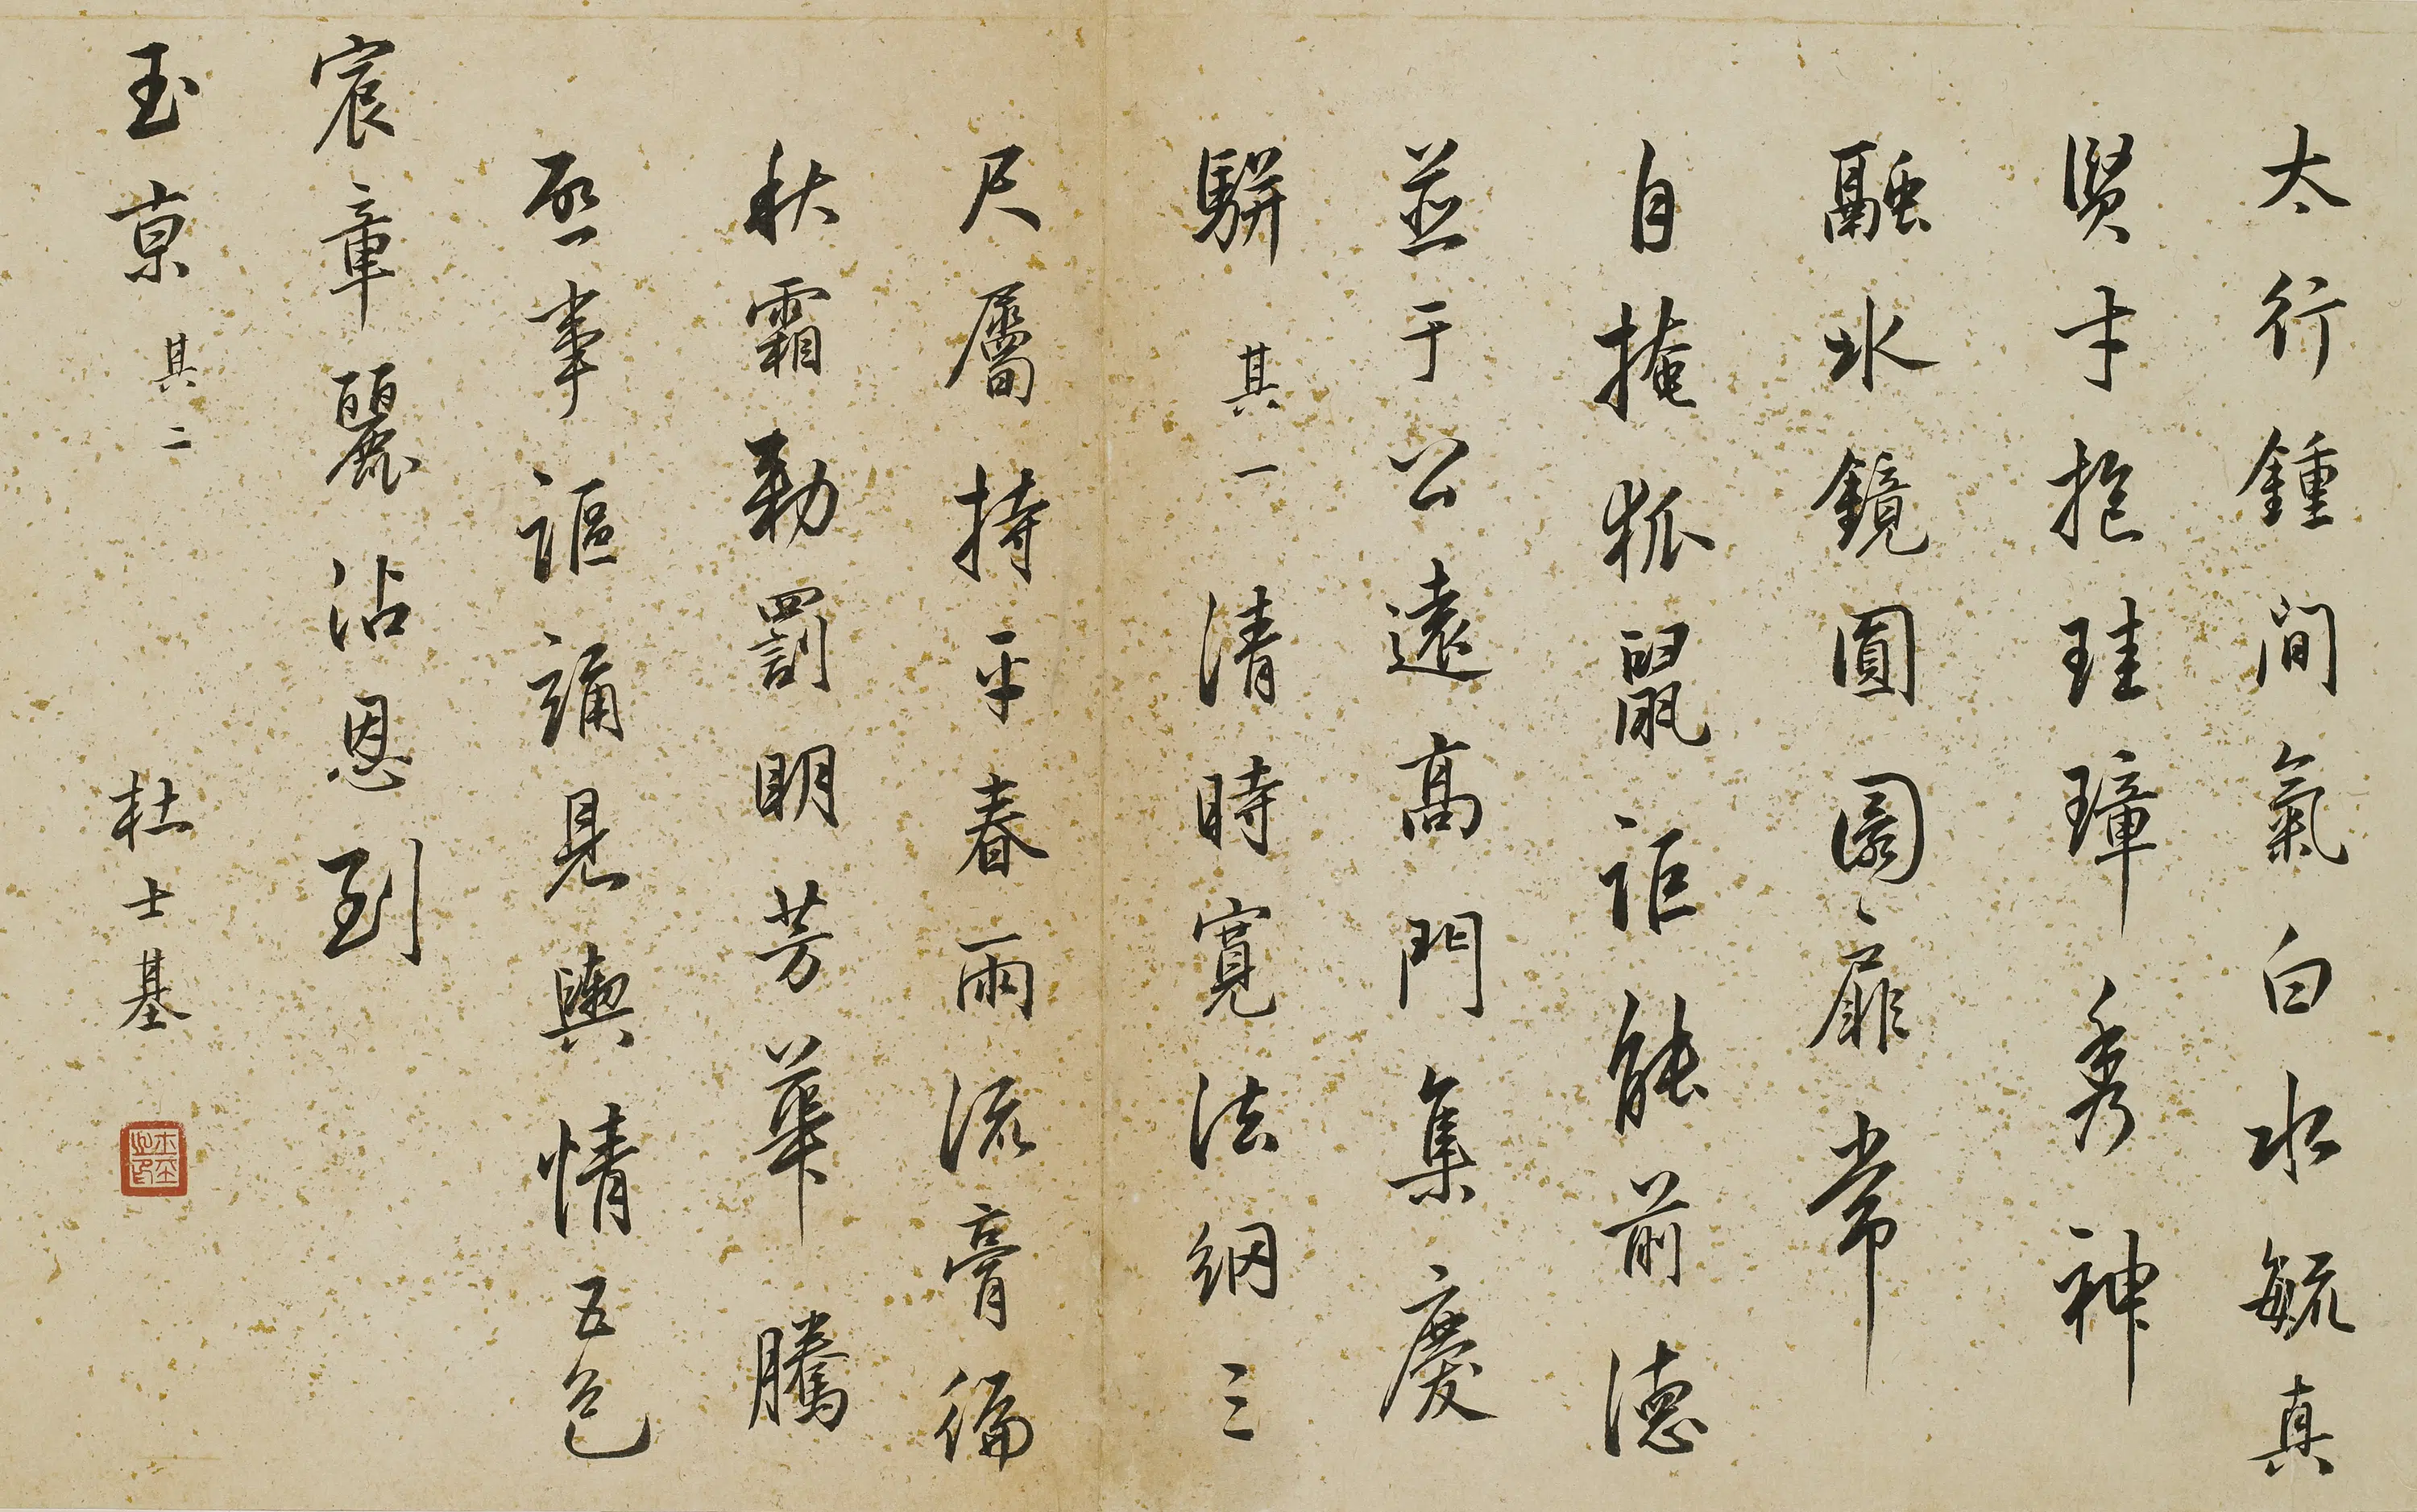 太行鍾間氣白水毓真
賢才抱珪璋秀神
融冰鏡圓圜扉常
自掩狐鼠詎能前德
並于公遠高門集慶
駢 其一 清時寬法網三
尺屬持平春雨流膏徧
秋霜勅罰明芳華騰
啟事謳誦見輿情五色
宸章麗沾恩到
玉京 其二 杜士基